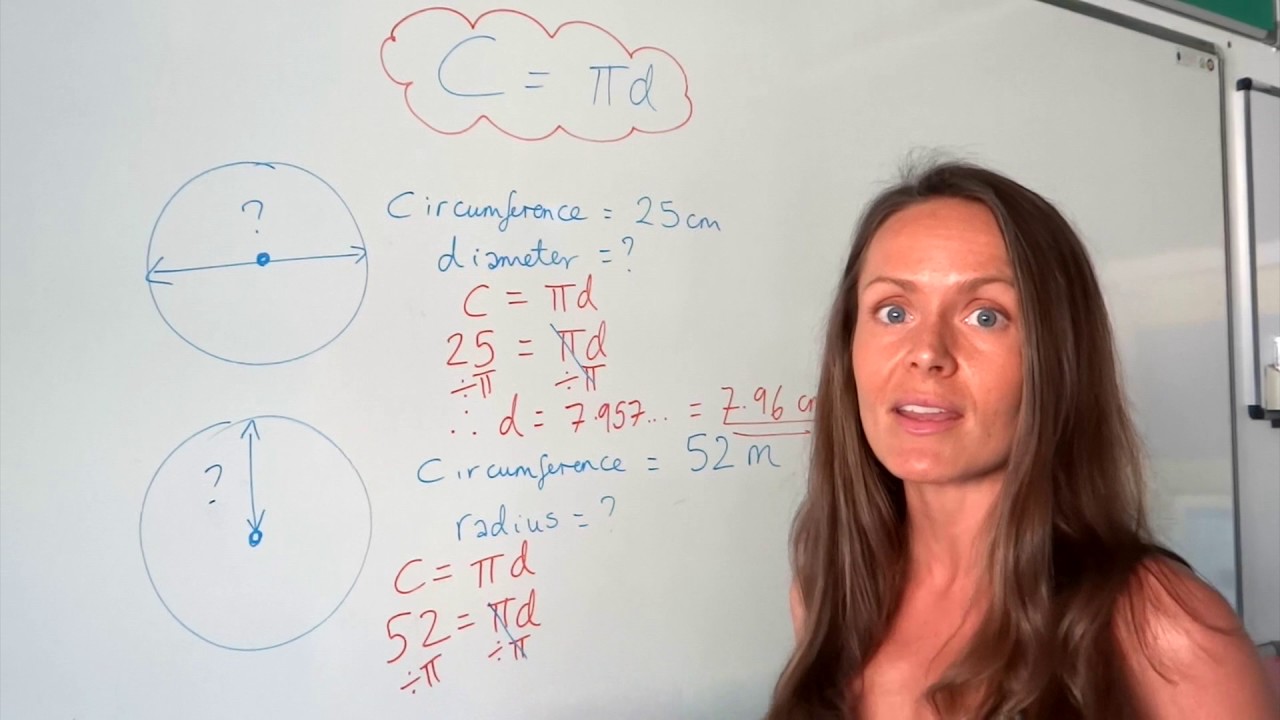 C = πd
?
Circumference = 25cm
diameter = ?
C = πd
25 = πd
÷π ÷π
∴ d = 7.957... = 7.96 cm
?
Circumference = 52 m
radius = ?
C = πd
52 = πd
÷π ÷π